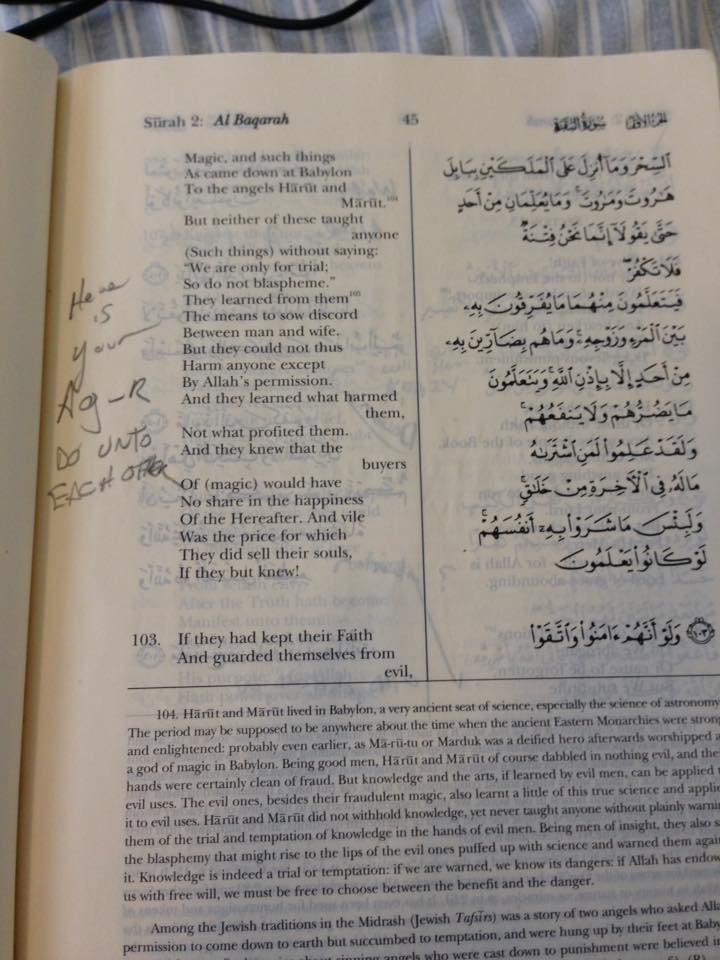 Sūrah 2: Al Baqarah
45
الجزء الأول سورة البقرة
Magic, and such things
As came down at Babylon
To the angels Hārūt and
Mārūt.104
But neither of these taught
anyone
(Such things) without saying:
"We are only for trial;
So do not blaspheme."
They learned from them105
The means to sow discord
Between man and wife.
But they could not thus
Harm anyone except
By Allah's permission.
And they learned what harmed
them,
Not what profited them.
And they knew that the
buyers
Of (magic) would have
No share in the happiness
Of the Hereafter. And vile
Was the price for which
They did sell their souls,
If they but knew!
103. If they had kept their Faith
And guarded themselves from
evil,
السِّحْرَ وَمَآ أُنزِلَ عَلَى الْمَلَكَيْنِ بِبَابِلَ
هَٰرُوتَ وَمَٰرُوتَ ۚ وَمَا يُعَلِّمَانِ مِنْ أَحَدٍ
حَتَّىٰ يَقُولَآ إِنَّمَا نَحْنُ فِتْنَةٌ
فَلَا تَكْفُرْ ۖ
فَيَتَعَلَّمُونَ مِنْهُمَا مَا يُفَرِّقُونَ بِهِۦ
بَيْنَ الْمَرْءِ وَزَوْجِهِۦ ۚ وَمَا هُم بِضَآرِّينَ بِهِۦ
مِنْ أَحَدٍ إِلَّا بِإِذْنِ اللَّهِ ۚ وَيَتَعَلَّمُونَ
مَا يَضُرُّهُمْ وَلَا يَنفَعُهُمْ ۚ
وَلَقَدْ عَلِمُوا لَمَنِ اشْتَرَىٰهُ
مَا لَهُۥ فِي الْآخِرَةِ مِنْ خَلَٰقٍ ۚ
وَلَبِئْسَ مَا شَرَوْا بِهِۦٓ أَنفُسَهُمْ ۚ
لَوْ كَانُوا يَعْلَمُونَ
١٠٣ وَلَوْ أَنَّهُمْ ءَامَنُوا وَاتَّقَوْا
Here
is
your
Ag-R
DO UNTO
EACH OTHER
104. Hārūt and Mārūt lived in Babylon, a very ancient seat of science, especially the science of astronomy.
The period may be supposed to be anywhere about the time when the ancient Eastern Monarchies were strong
and enlightened: probably even earlier, as Mā-rū-tu or Marduk was a deified hero afterwards worshipped a
a god of magic in Babylon. Being good men, Hārūt and Mārūt of course dabbled in nothing evil, and the
hands were certainly clean of fraud. But knowledge and the arts, if learned by evil men, can be applied t
evil uses. The evil ones, besides their fraudulent magic, also learnt a little of this true science and applie
it to evil uses. Hārūt and Mārūt did not withhold knowledge, yet never taught anyone without plainly warnin
them of the trial and temptation of knowledge in the hands of evil men. Being men of insight, they also s
the blasphemy that might rise to the lips of the evil ones puffed up with science and warned them again
it. Knowledge is indeed a trial or temptation: if we are warned, we know its dangers: if Allah has endow
us with free will, we must be free to choose between the benefit and the danger.
Among the Jewish traditions in the Midrash (Jewish Tafsīrs) was a story of two angels who asked Alla
permission to come down to earth but succumbed to temptation, and were hung up by their feet at Baby
sinning angels who were cast down to punishment were believed in